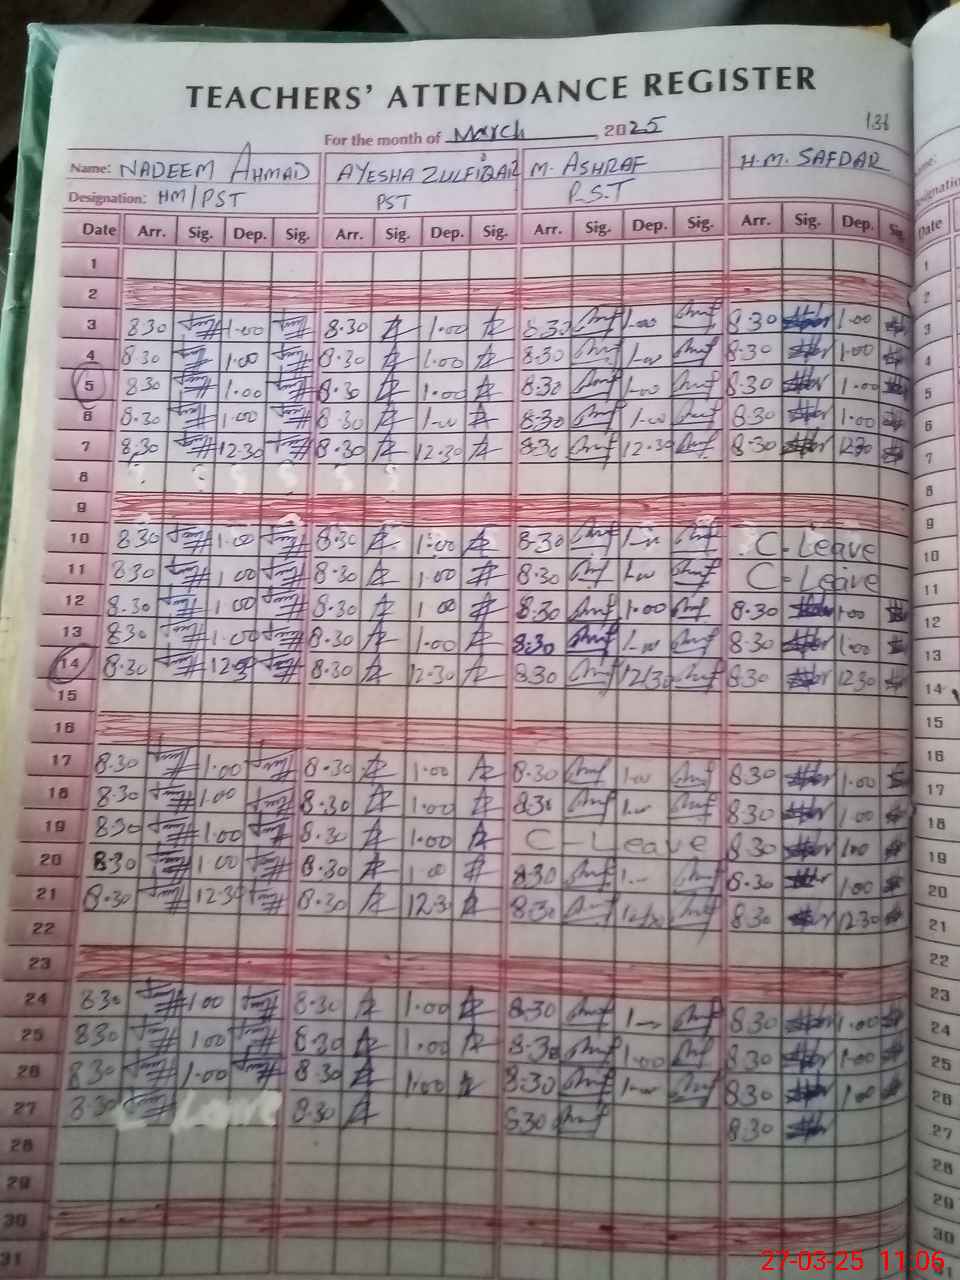 TEACHERS' ATTENDANCE REGISTER
For the month of March, 2025
136
Name: NADEEM AHMAD AYESHA ZULFIQAR M. ASHRAF H.M. SAFDAR
Designation: HM/PST PST P.S.T
Date Arr. Sig. Dep. Sig. Arr. Sig. Dep. Sig. Arr. Sig. Dep. Sig. Arr. Sig. Dep. Sig. Date
1 1
2 2
3 8.30 1.00 8.30 1.00 8.30 1.00 8.30 1.00 3
4 8.30 1.00 8.30 1.00 8.30 1.00 8.30 1.00 4
5 8.30 1.00 8.30 1.00 8.30 1.00 8.30 1.00 5
6 8.30 1.00 8.30 1.00 8.30 1.00 8.30 1.00 6
7 8.30 12.30 8.30 12.30 8.30 12.30 8.30 12.30 7
8 8
9 9
10 8.30 1.00 8.30 1.00 8.30 C-Leave 10
11 8.30 1.00 8.30 1.00 8.30 1.00 C-Leave 11
12 8.30 1.00 8.30 1.00 8.30 1.00 8.30 1.00 12
13 8.30 1.00 8.30 1.00 8.30 1.00 8.30 1.00 13
14 8.30 12.30 8.30 12.30 8.30 12.30 8.30 12.30 14
15 15
16 16
17 8.30 1.00 8.30 1.00 8.30 1.00 8.30 1.00 17
18 8.30 1.00 8.30 1.00 8.30 1.00 8.30 1.00 18
19 8.30 1.00 8.30 1.00 C-Leave 8.30 1.00 19
20 8.30 1.00 8.30 1.00 8.30 8.30 1.00 20
21 8.30 12.30 8.30 12.30 8.30 12.30 8.30 12.30 21
22 22
23 23
24 8.30 1.00 8.30 1.00 8.30 8.30 1.00 24
25 8.30 1.00 8.30 1.00 8.30 1.00 8.30 1.00 25
26 8.30 1.00 8.30 1.00 8.30 1.00 8.30 1.00 26
27 8.30 Leave 8.30 8.30 8.30 27
28 28
29 29
30 30
31
27-03-25 11:06